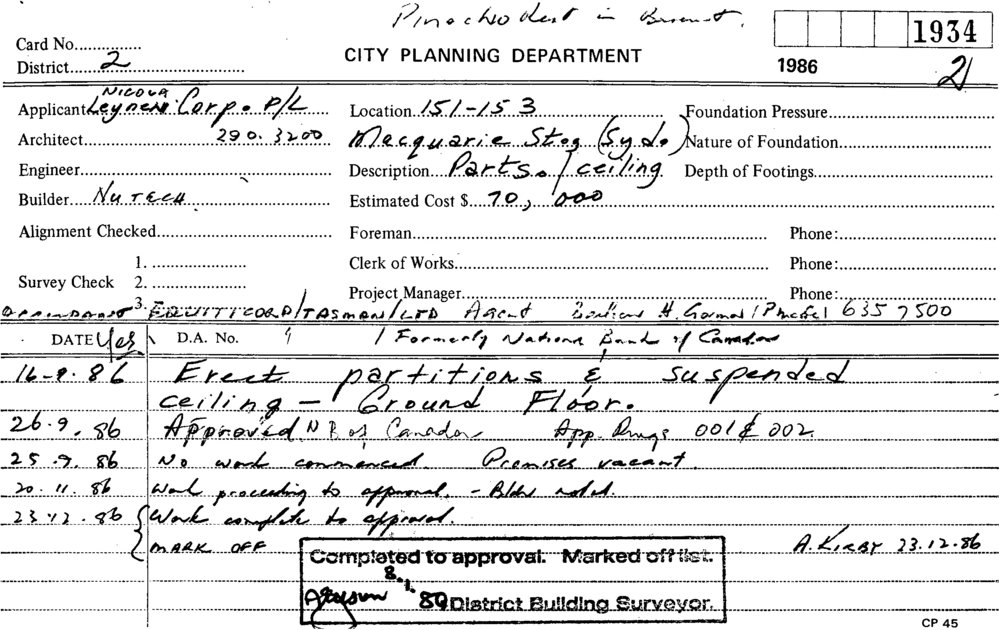 Pinocchio Rest in Basement.
1934
Card No.
District 2
CITY PLANNING DEPARTMENT
1986
2
NICOLA
Applicant Corp. P/L
Location 151-153
Foundation Pressure
Architect 290.3200
Macquarie St. (Syd.)
Nature of Foundation
Engineer
Description Parts. / ceiling
Depth of Footings
Builder NuTECH
Estimated Cost $ 70,000
Alignment Checked
Foreman
Phone:
Survey Check 1.
Clerk of Works
Phone:
2.
Project Manager
Phone:
3.
EQUITICORP/TASMAN/LTD Agent H. 635 7500
DATE Yes D.A. No.
/ Formerly National Bank of Canada
16-9.86 Erect partitions & suspended
ceiling - Ground Floor.
26.9.86 Approved N B of Canada App. Drwgs 001 & 002
25.9.86 No work commenced. Premises vacant.
20.11.86 Work proceeding to approval. - Bldr noted.
23.12.86 Work complete to approval.
MARK OFF
A. KIRBY 23.12.86
Completed to approval. Marked off list.
8.1.
District Building Surveyor.
CP 45